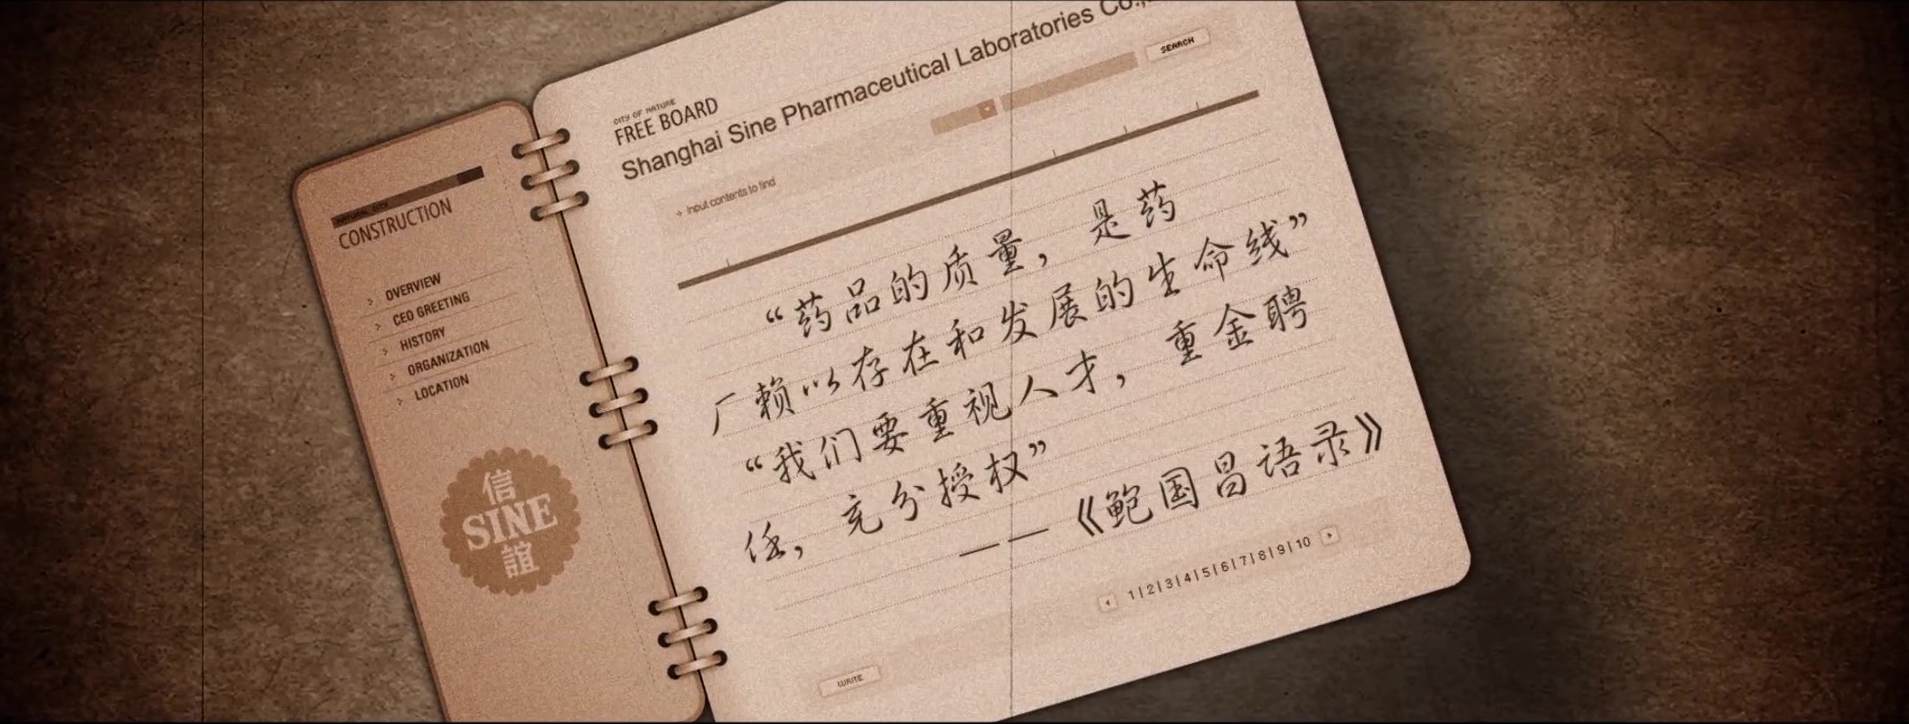 NATURAL CITY
CONSTRUCTION
OVERVIEW
CEO GREETING
HISTORY
ORGANIZATION
LOCATION
信
SINE
誼
CITY OF NATURE
FREE BOARD
Shanghai Sine Pharmaceutical Laboratories Co.,
SEARCH
Input contents to find
“药品的质量，是药
厂赖以存在和发展的生命线”
“我们要重视人才，重金聘
任，充分授权”
——《鲍国昌语录》
1|2|3|4|5|6|7|8|9|10
WRITE